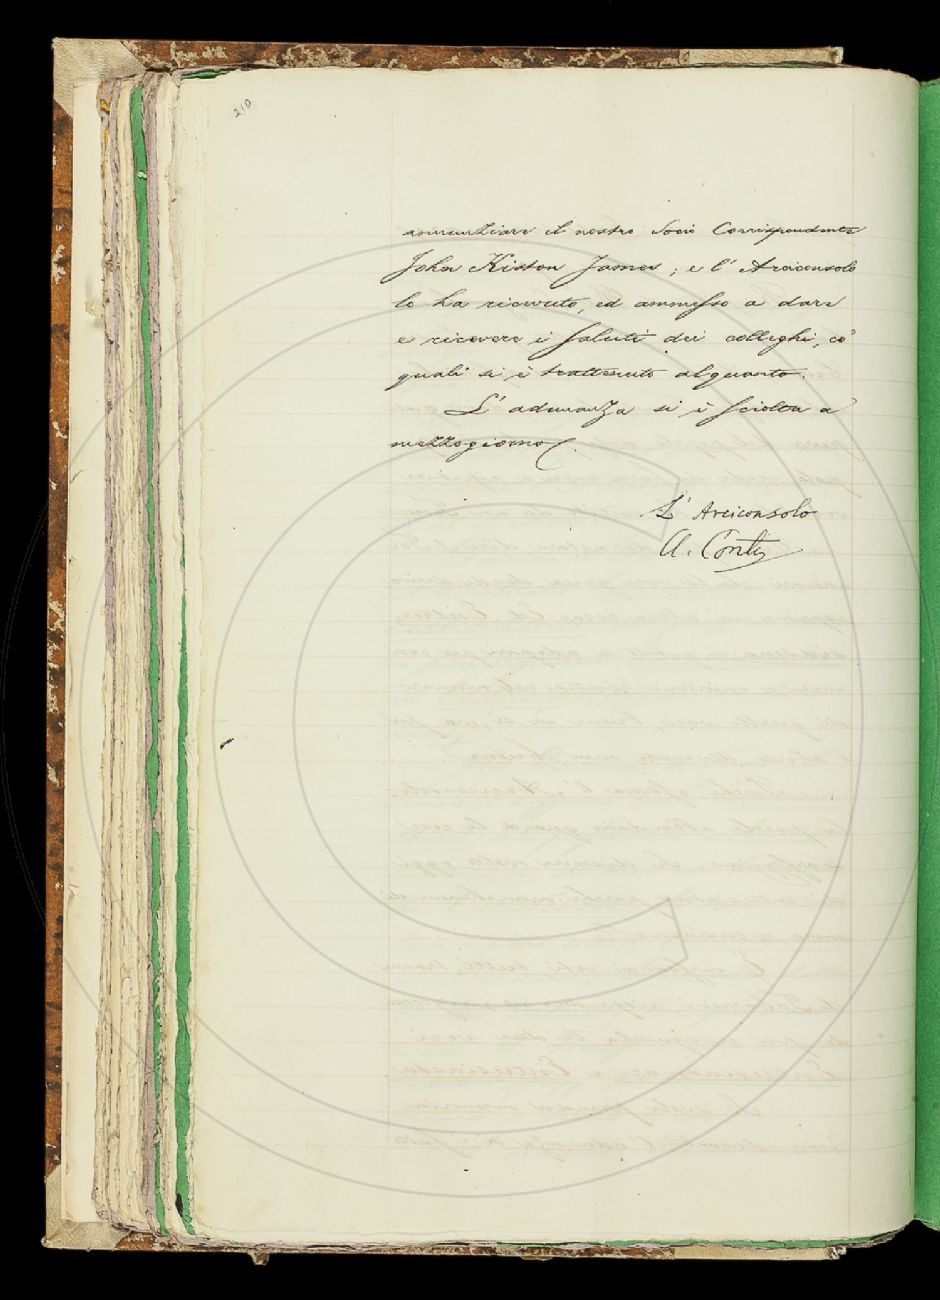 210
annunziare il nostro Socio Corrispondente
John Kirston James; e l' Arciconsolo
lo ha ricevuto, ed ammesso a dare
e ricevere i saluti dei colleghi, co'
quali si è trattenuto alquanto.
L' adunanza si è sciolta a
mezzogiorno.
L' Arciconsolo
A. Conti